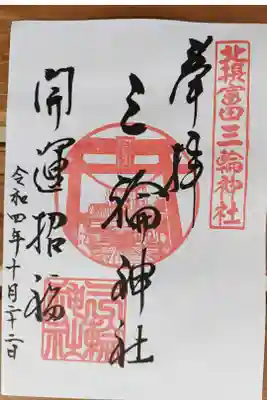 北摂富田三輪神社
奉拝
三輪神社
開運招福
令和四年十月二十二日
三輪神社